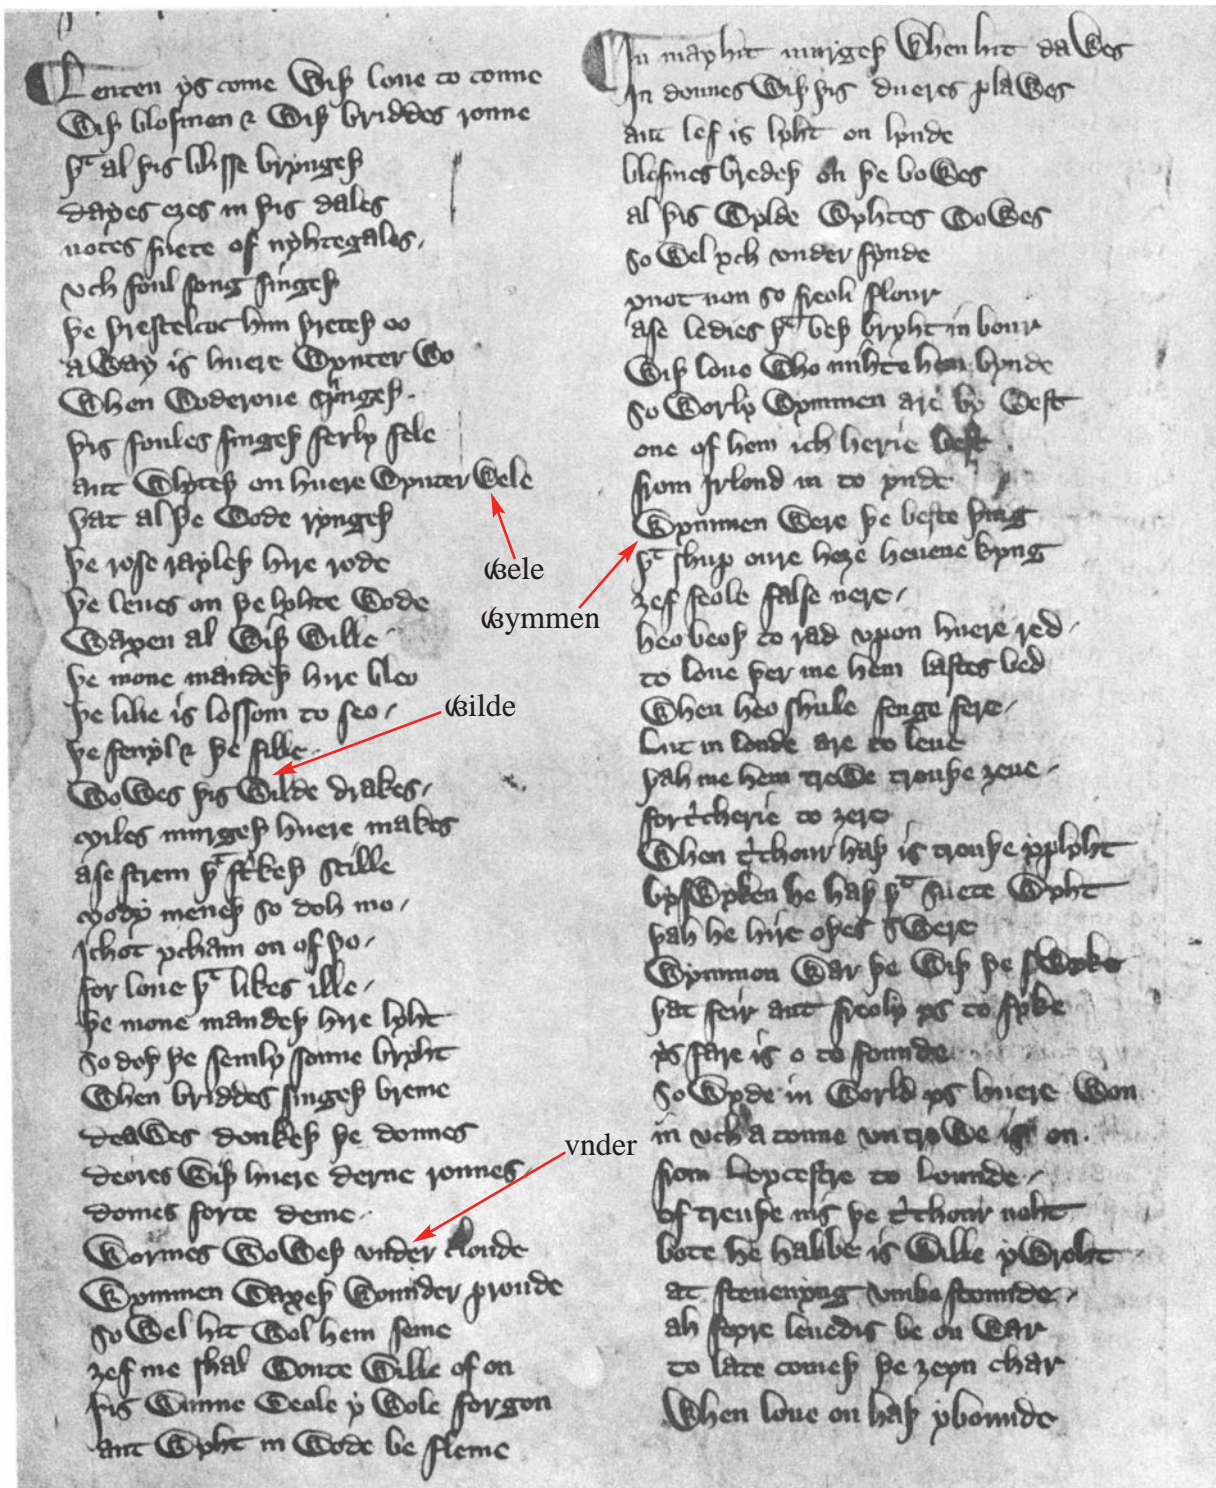 Lenten ys come wiþ loue to toune
wiþ blosmen & wiþ briddes roune
þᵗ al þis blisse bryngeþ
dayes eȝes in þis dales
notes suete of nyhtegales.
vch foul song singeþ
þe þrestelcoc him þreteþ oo
away is huere wynter wo
when woderoue springeþ.
þis foules singeþ ferly fele
ant wlyteþ on huere wynter wele
þat al þe wode ryngeþ
þe rose rayleþ hire rode
þe leues on þe lyhte wode
waxen al wiþ wille.
þe mone mandeþ hire bleo
þe lilie is lossom to seo/
þe fenyl & þe fille.
wowes þis wilde drakes.
miles murgeþ huere makes
ase strem þᵗ strikeþ stille
mody meneþ so doh mo/
Ichot ycham on of þo/
for loue þᵗ likes ille/
þe mone mandeþ hire lyht
so doþ þe semly sonne bryht
when briddes singeþ breme
deawes donkeþ þe dounes
deores wiþ huere derne rounes.
domes forte deme.
wormes woweþ vnder cloude
wymmen waxeþ wounder proude
so wel hit wol hem seme
ȝef me shal wonte wille of on
þis wunne weole y wole forgon
ant wyht in wode be fleme
ꝡele
ꝡymmen
ꝡilde
vnder
In may hit murgeþ when hit dawes
In dounes wiþ þis dueres plawes
ant lef is lyht on lynde
blosmes bredeþ on þe bowes
al þis wylde wyhtes wowes
so wel ych vnder fynde
ynot non so freoli flour
ase ledies þᵗ beþ bryht in bour
wiþ loue who mihte hem bynde
so worly wymmen are by west
one of hem ich herie best
from Irlond in to ynde
wymmen were þe beste þing
þᵗ shup oure heȝe heuene kyng
ȝef feole false nere/
heo beoþ to rad vpon huere red/
to loue þer me hem lastes bed
when heo shule fenge fere/
Lut in londe are to leue
þah me hem trewe trouþe ȝeue/
for tricherie to ȝere
when trichour haþ is trouþe yplyht
byswyken he haþ þᵗ suete wyht
þah he hire oþes swere
wymmon war þe wiþ þe swyke
þat feir ant freoly ys to fyke
ys fare is o to founde
so wyde in world ys huere won
in vch a toune vntrewe is on.
from Leycestre to Lounde/
of treuþe nis þe trichour noht
bote he habbe is wille ywroht
at steuenyng vmbe stounde/
ah feyre leuedis be on war
to late comeþ þe ȝeyn char
when loue ou haþ ybounde